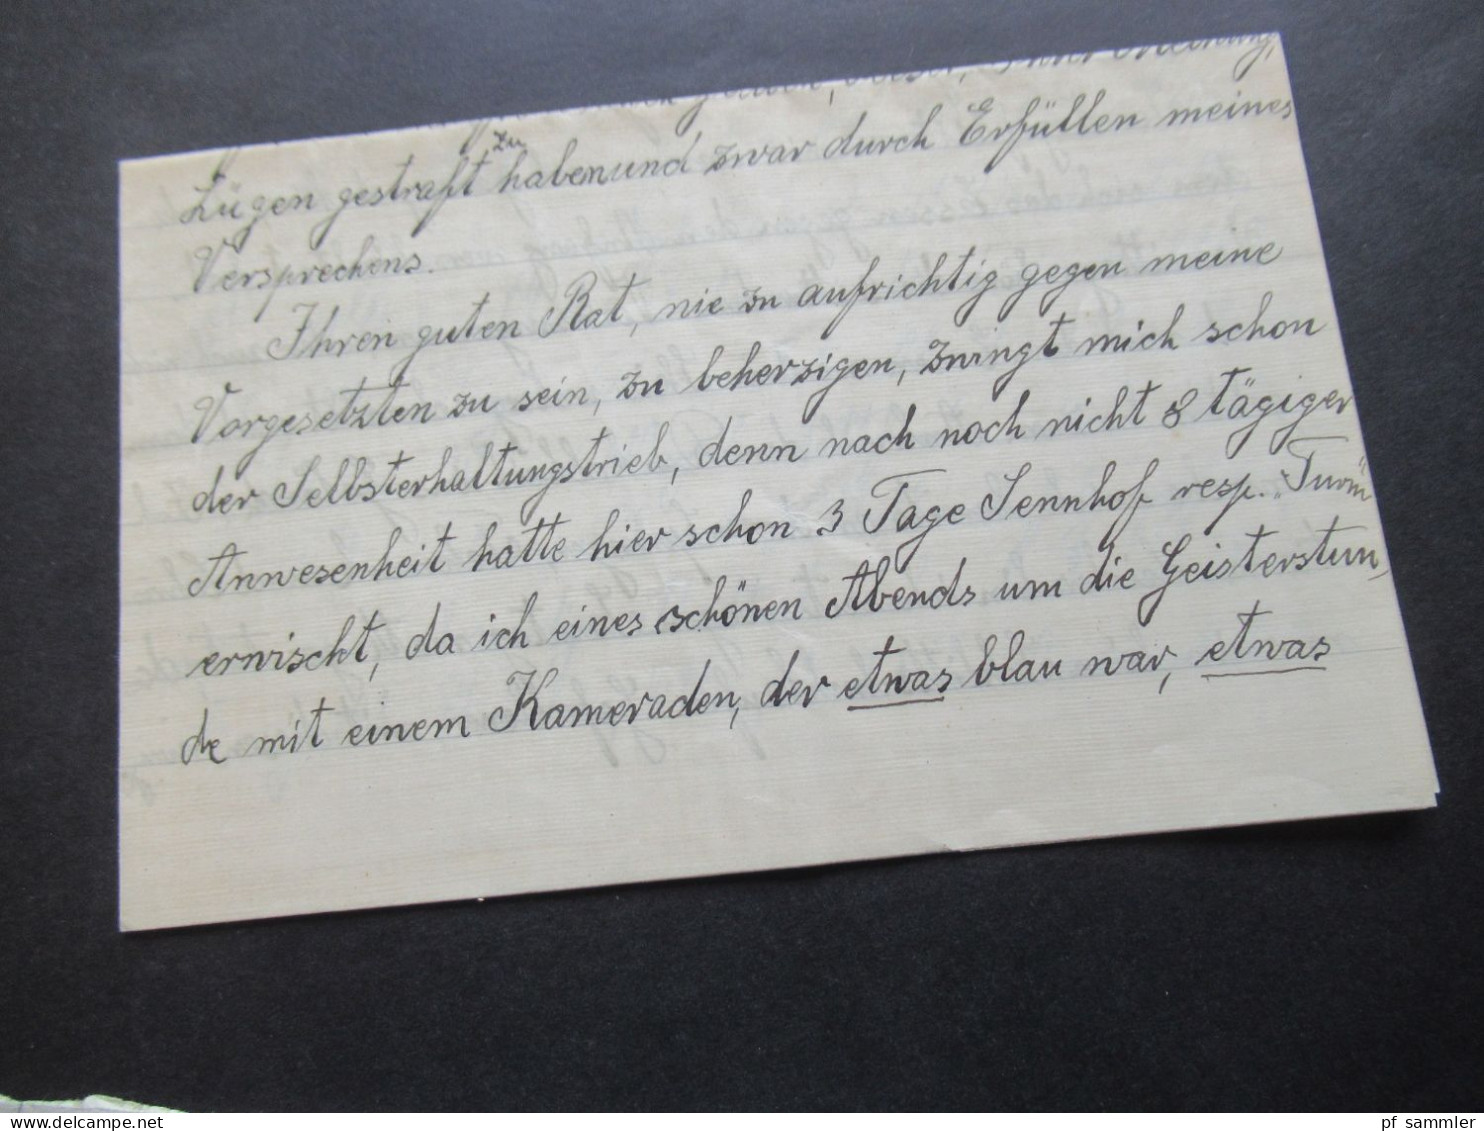 Ihrer Meinung,
Lügen gestraft zu haben und zwar durch Erfüllen meines
Versprechens.
Ihren guten Rat, nie zu aufrichtig gegen meine
Vorgesetzten zu sein, zu beherzigen, zwingt mich schon
der Selbsterhaltungstrieb, denn nach noch nicht 8 tägiger
Anwesenheit hatte hier schon 3 Tage Sennhof resp. "Turm"
erwischt, da ich eines schönen Abends um die Geisterstun,
de mit einem Kameraden, der etwas blau war, etwas
pf sammler